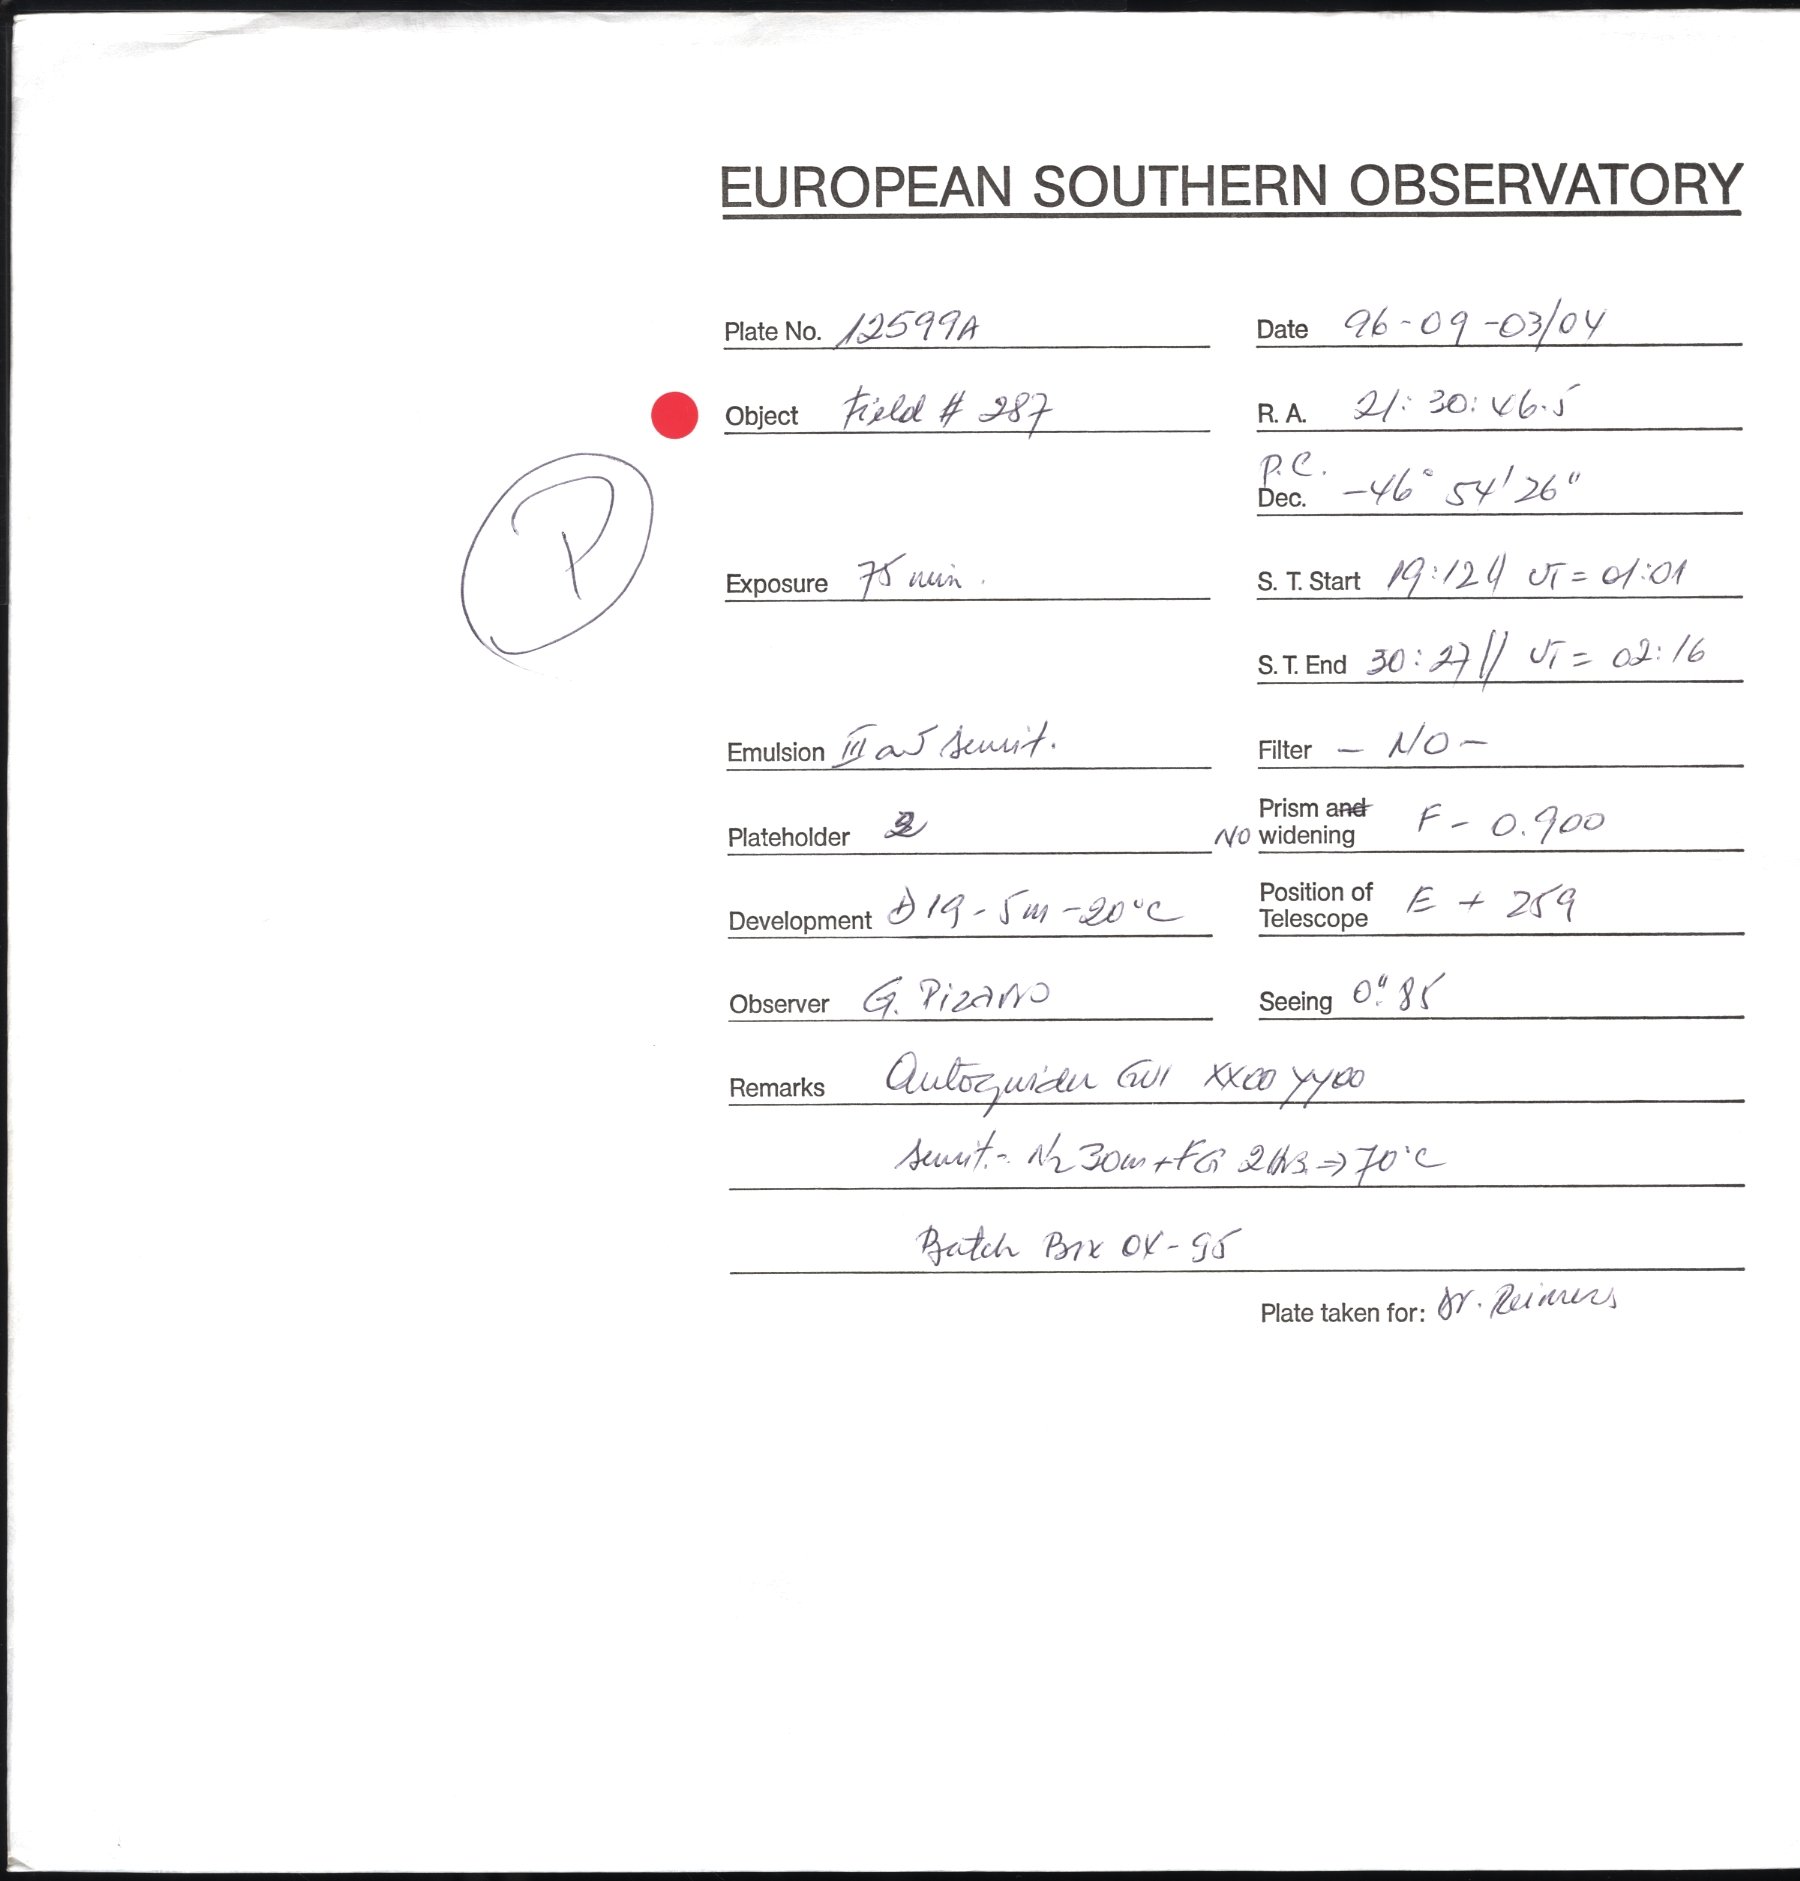 EUROPEAN SOUTHERN OBSERVATORY
Plate No. 12599A
Date 96-09-03/04
Object Field # 287
R. A. 21: 30: 46.5
P.C.
Dec. -46° 54' 26"
P
Exposure 75 min.
S. T. Start 19:12 // UT = 01:01
S. T. End 30:27 // UT = 02:16
Emulsion III aJ sensit.
Filter - NO -
Plateholder
NO Prism and widening F - 0.900
Development D19 - 5m - 20°C
Position of Telescope E + 259
Observer G. Pizarro
Seeing 0".85
Remarks Autoguider XX00 YY00
sensit.- N2 30m + FG 2Hrs. => 70°C
Batch Box 0X-95
Plate taken for: Dr. Reimers